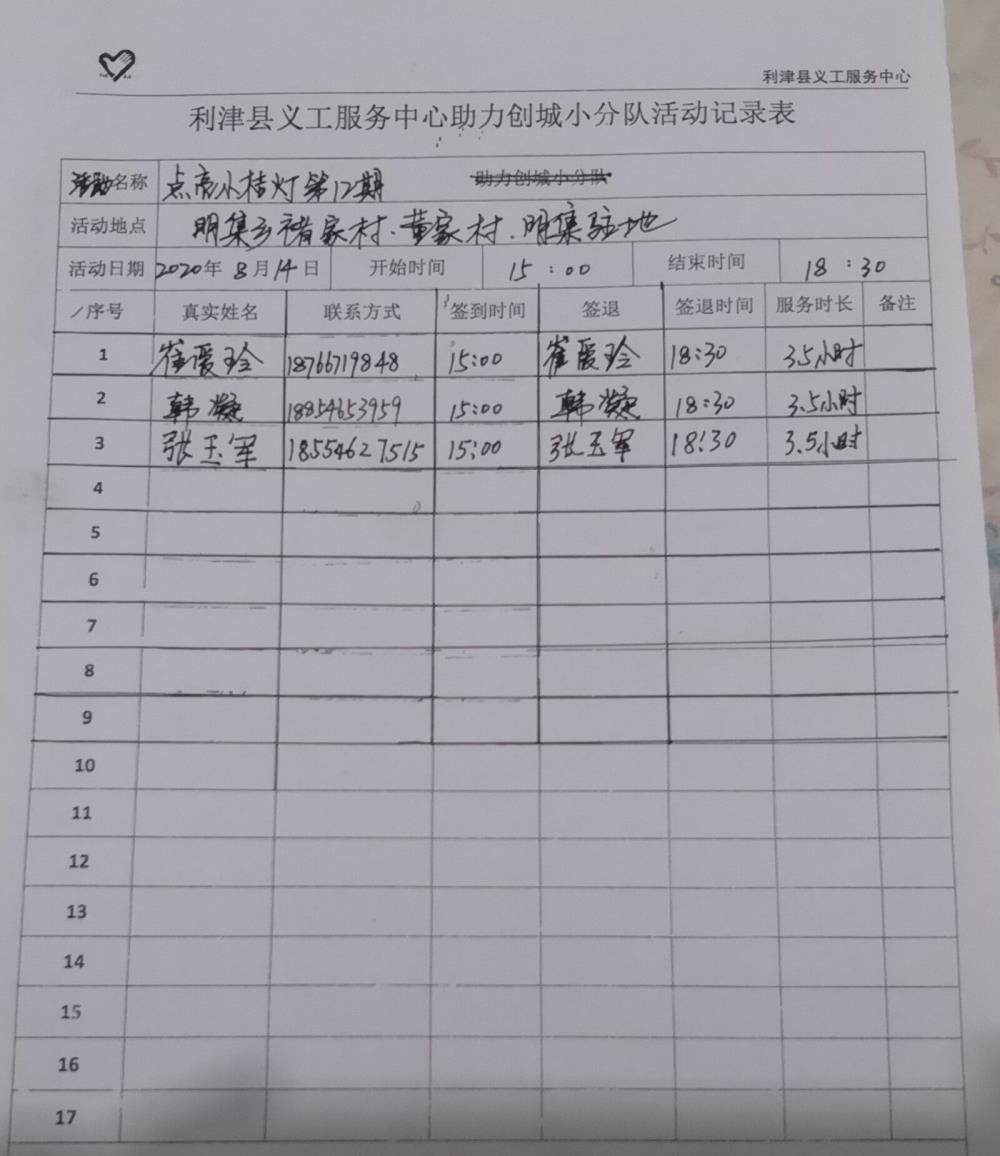 利津县义工服务中心
利津县义工服务中心助力创城小分队活动记录表
活动名称 点亮小桔灯第12期 助力创城小分队
活动地点 明集乡褚家村.黄家村.明集驻地
活动日期 2020年8月14日 开始时间 15:00 结束时间 18:30
/序号 真实姓名 联系方式 签到时间 签退 签退时间 服务时长 备注
1 崔爱玲 18766719848 15:00 崔爱玲 18:30 3.5小时
2 韩凝 18954653959 15:00 韩凝 18:30 3.5小时
3 张玉军 18554627515 15:00 张玉军 18:30 3.5小时
4
5
6
7
8
9
10
11
12
13
14
15
16
17